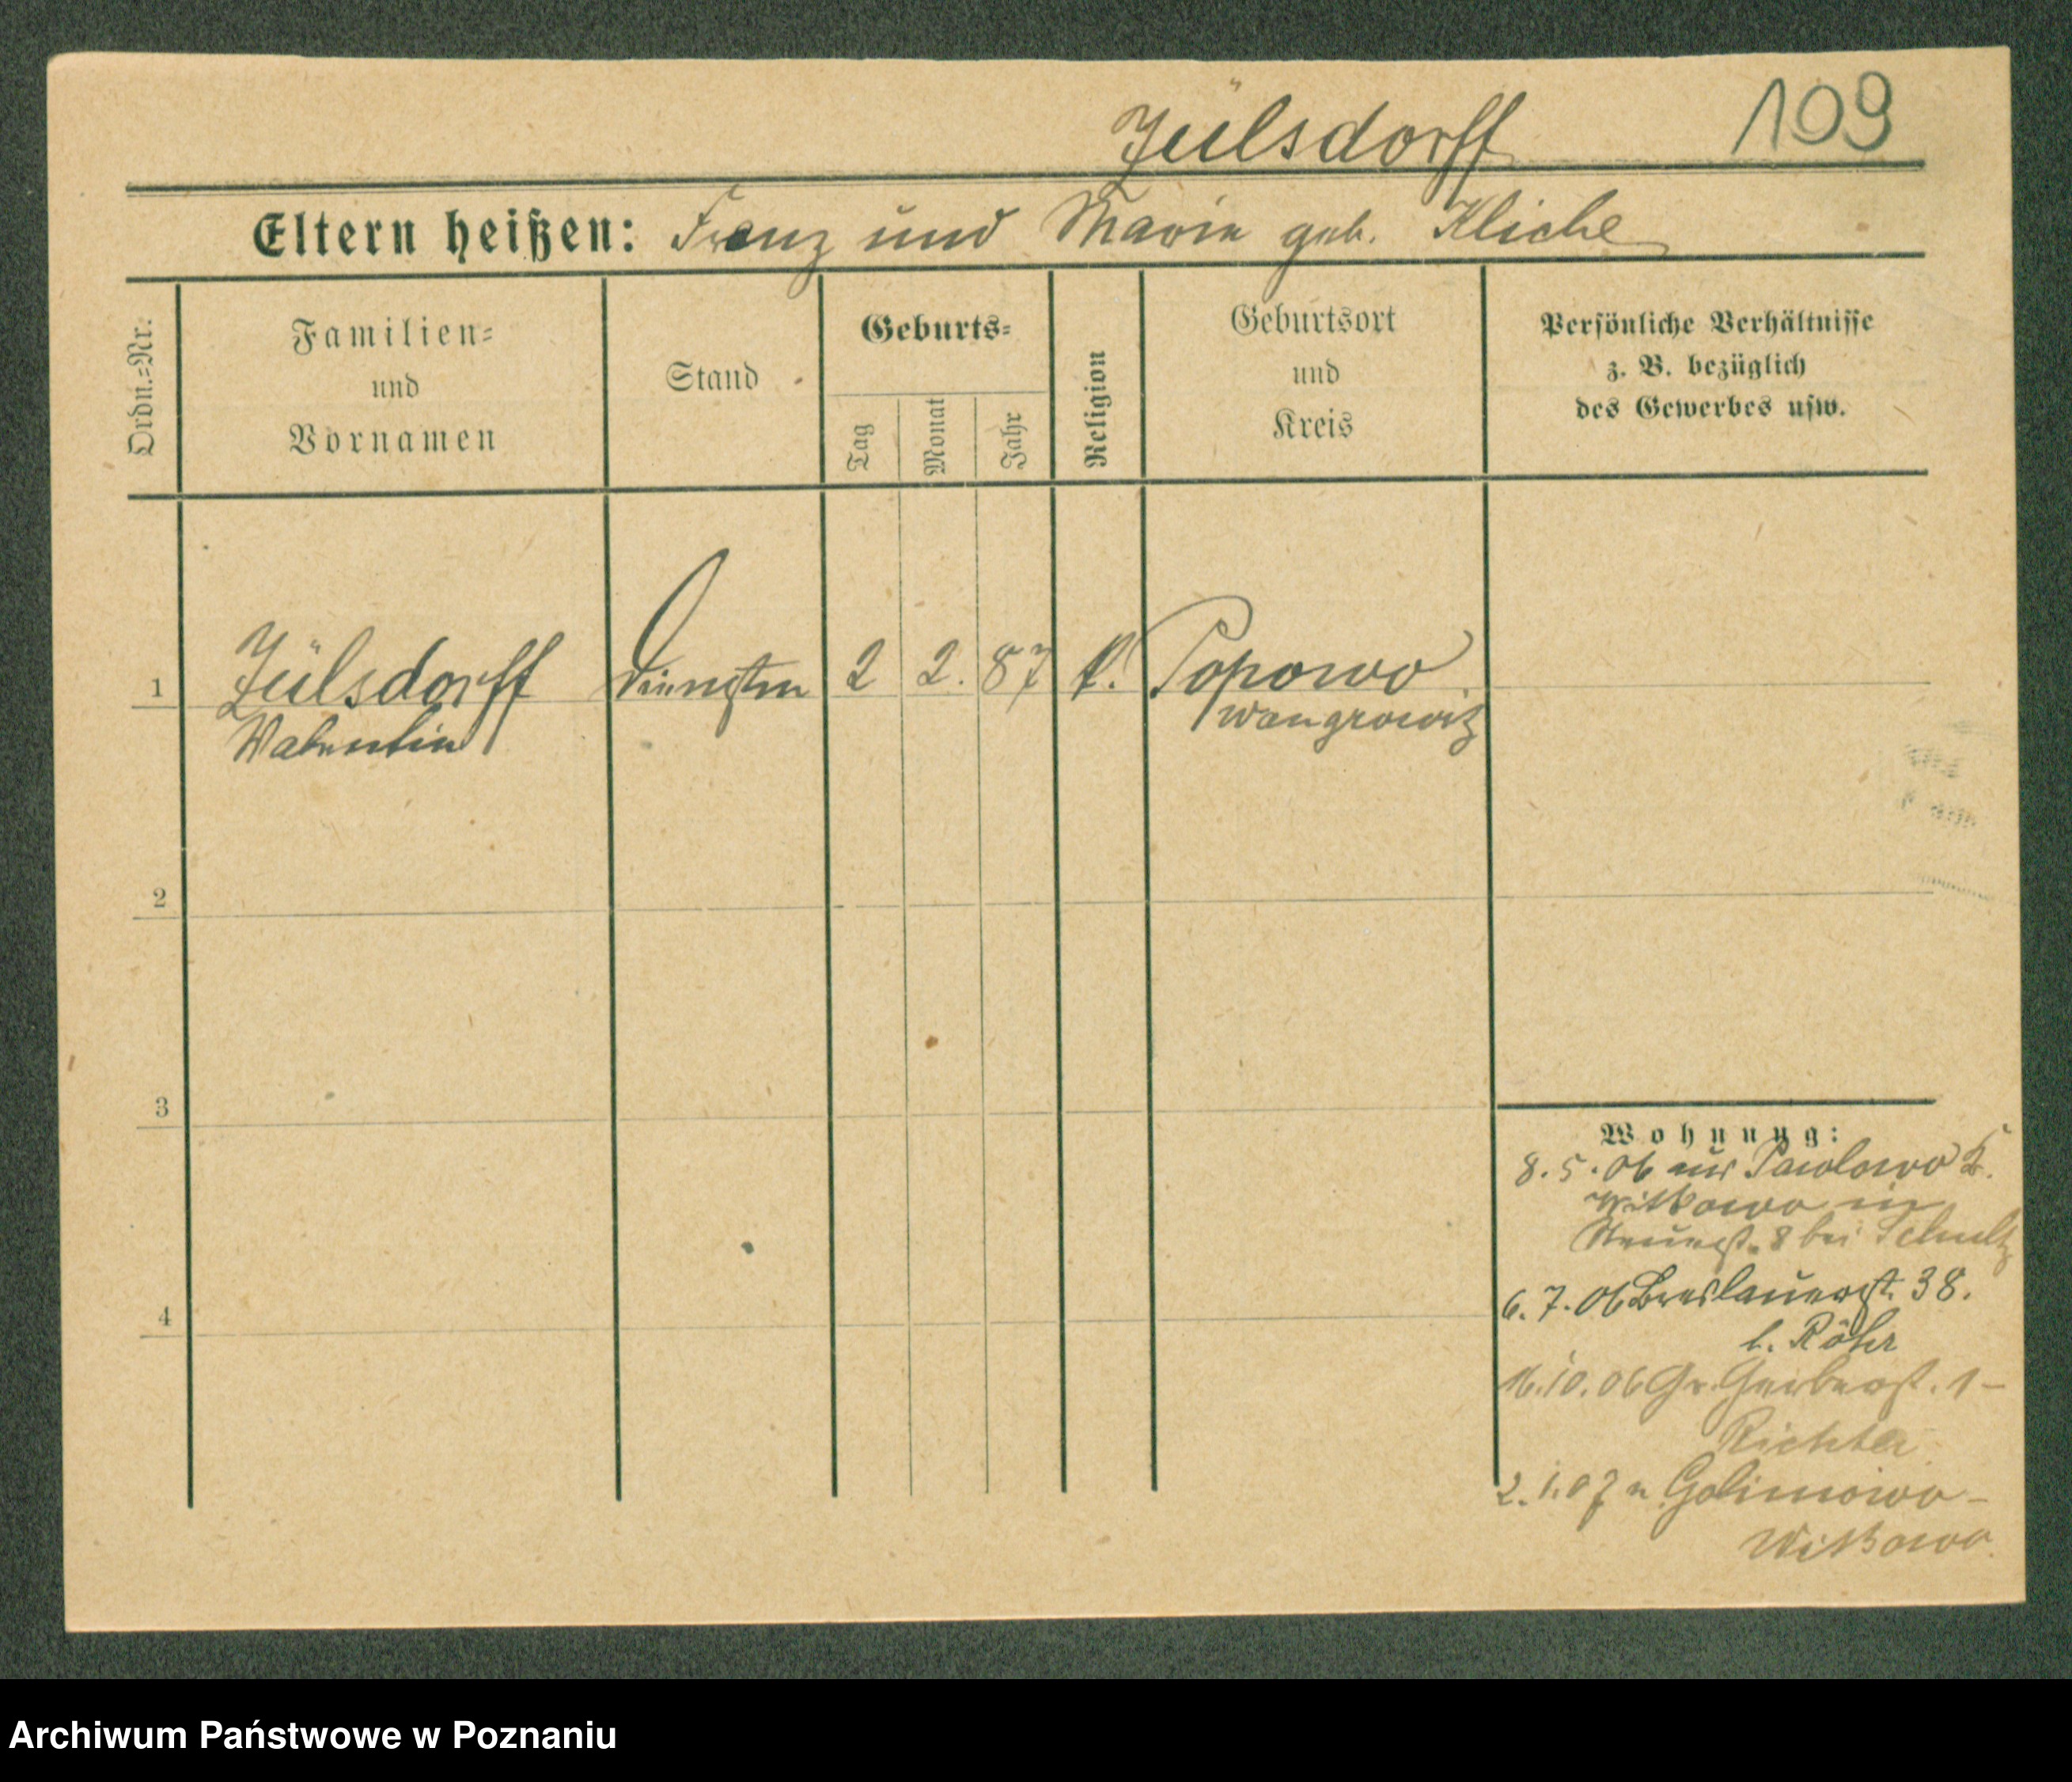 Jülsdorff
109
Eltern heißen: Franz und Maria geb. Kliche
Ordn.=Nr.
Familien=
und
Vornamen
Stand
Geburts=
Tag
Monat
Jahr
Religion
Geburtsort
und
Kreis
Persönliche Verhältnisse
z. B. bezüglich
des Gewerbes usw.
1
Jülsdorff
Valentin
2
2.
87
k.
Popowo
Wongrowitz
2
3
4
Wohnung:
8.5.06 aus Pawlowo K.
Witkowo in
8 bei Schultz
6.7.06 Breslauerst. 38.
b. Röhr
16.10.06 Gr. Gerberst. 1 –
Richter
2.1.07 n. Golimowo –
Witkowo.
Archiwum Państwowe w Poznaniu